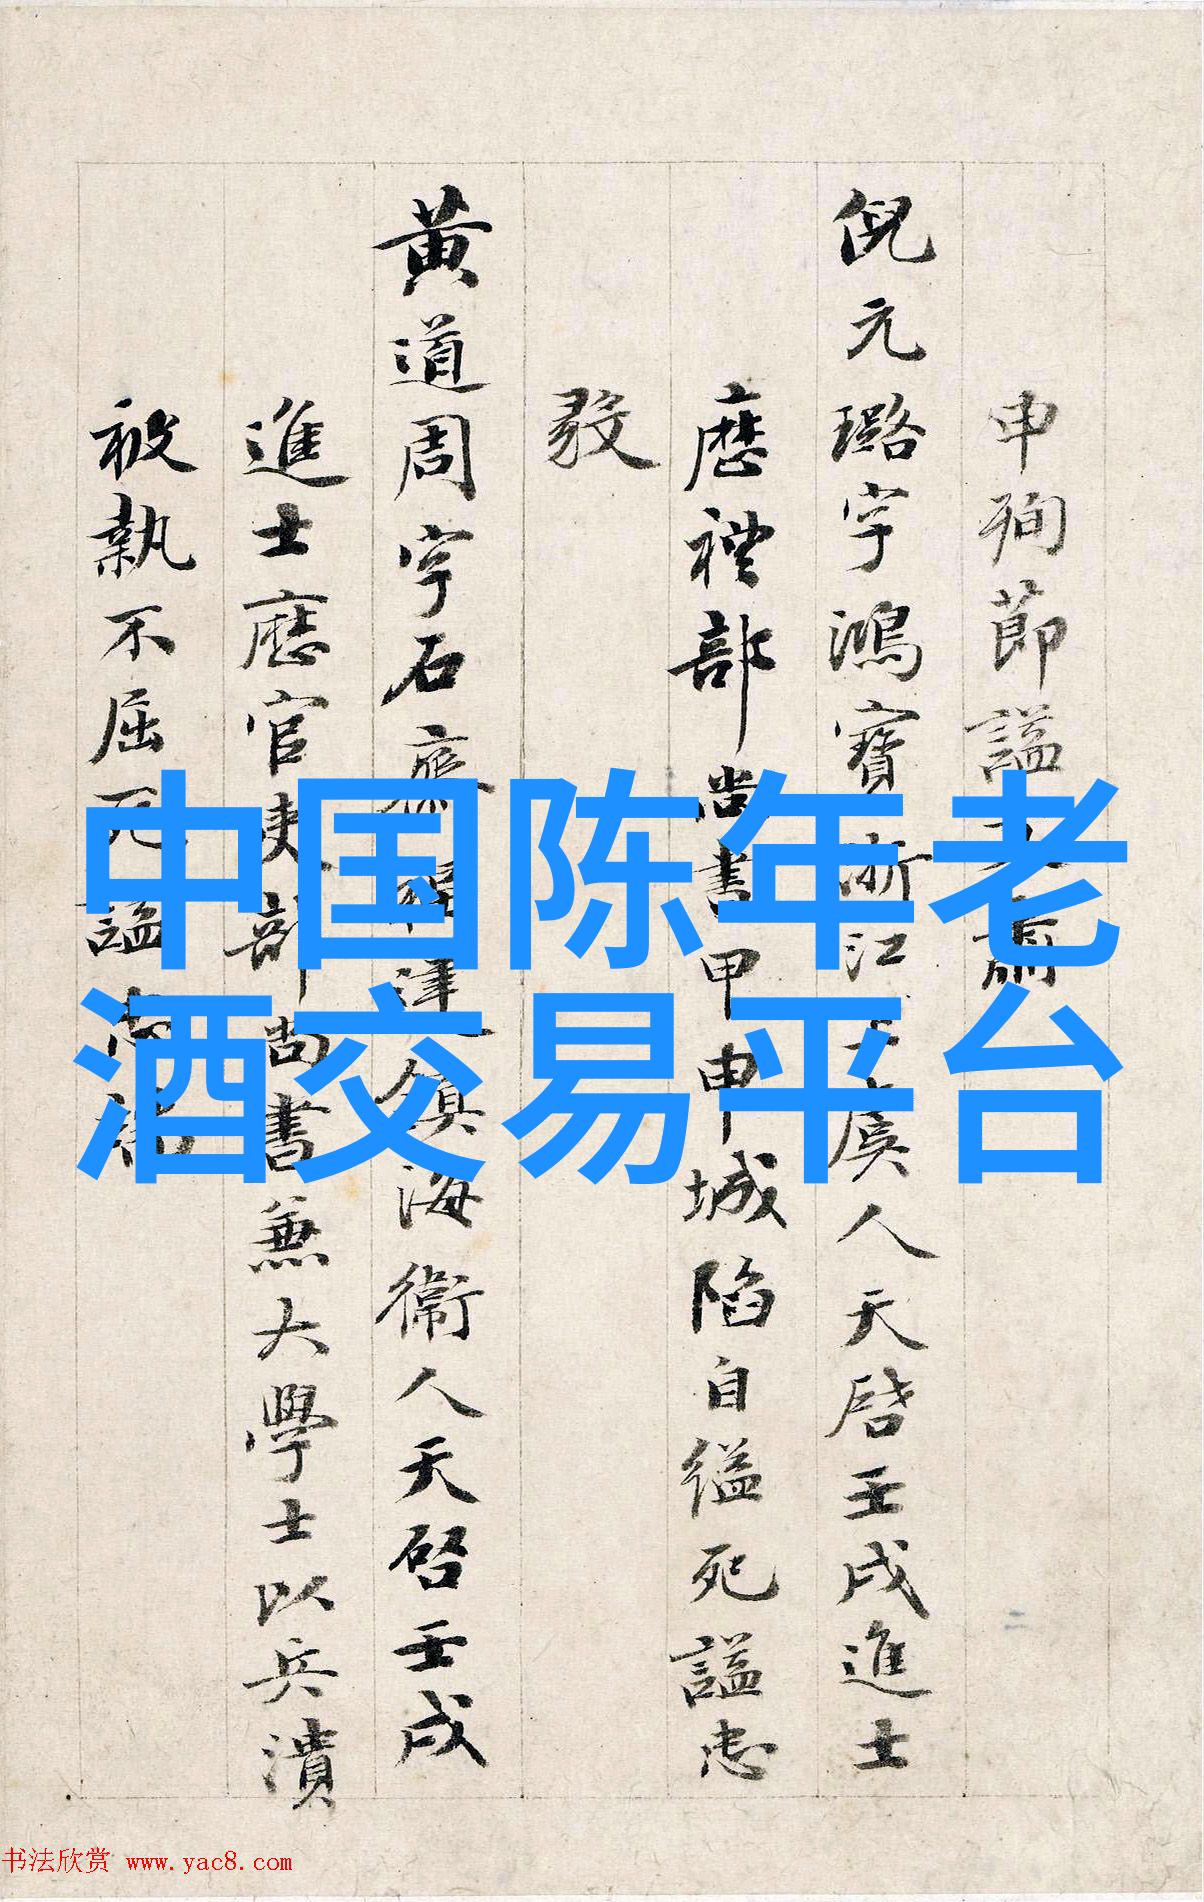 申殉節謚文
倪元璐字鴻寶浙江上虞人天啓壬戌進士
歴禮部尚書甲申城陷自縊死謚忠
黄道周字石齋福建鎮海衞人天啓壬戌
進士歴官吏部尚書兼大學士以兵潰
被執不屈死謚
中国陈年老
酒交易平台
书法欣赏 www.yac8.com